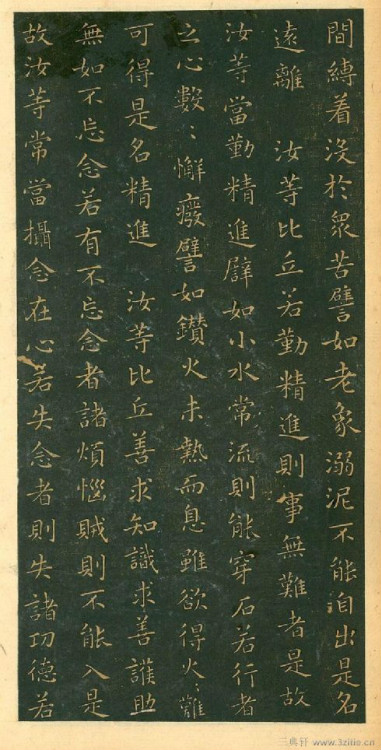 間縛着没於衆苦譬如老象溺泥不能自出是名
遠離　汝等比丘若勤精進則事無難者是故
汝等當勤精進辟如小水常流則能穿石若行者
之心數〻懈癈譬如鑽火未熱而息雖欲得火〻難
可得是名精進　汝等比丘善求知識求善護助
無如不忘念若有不忘念者諸煩惱賊則不能入是
故汝等常當攝念在心若失念者則失諸功德若
www.3zitie.cn